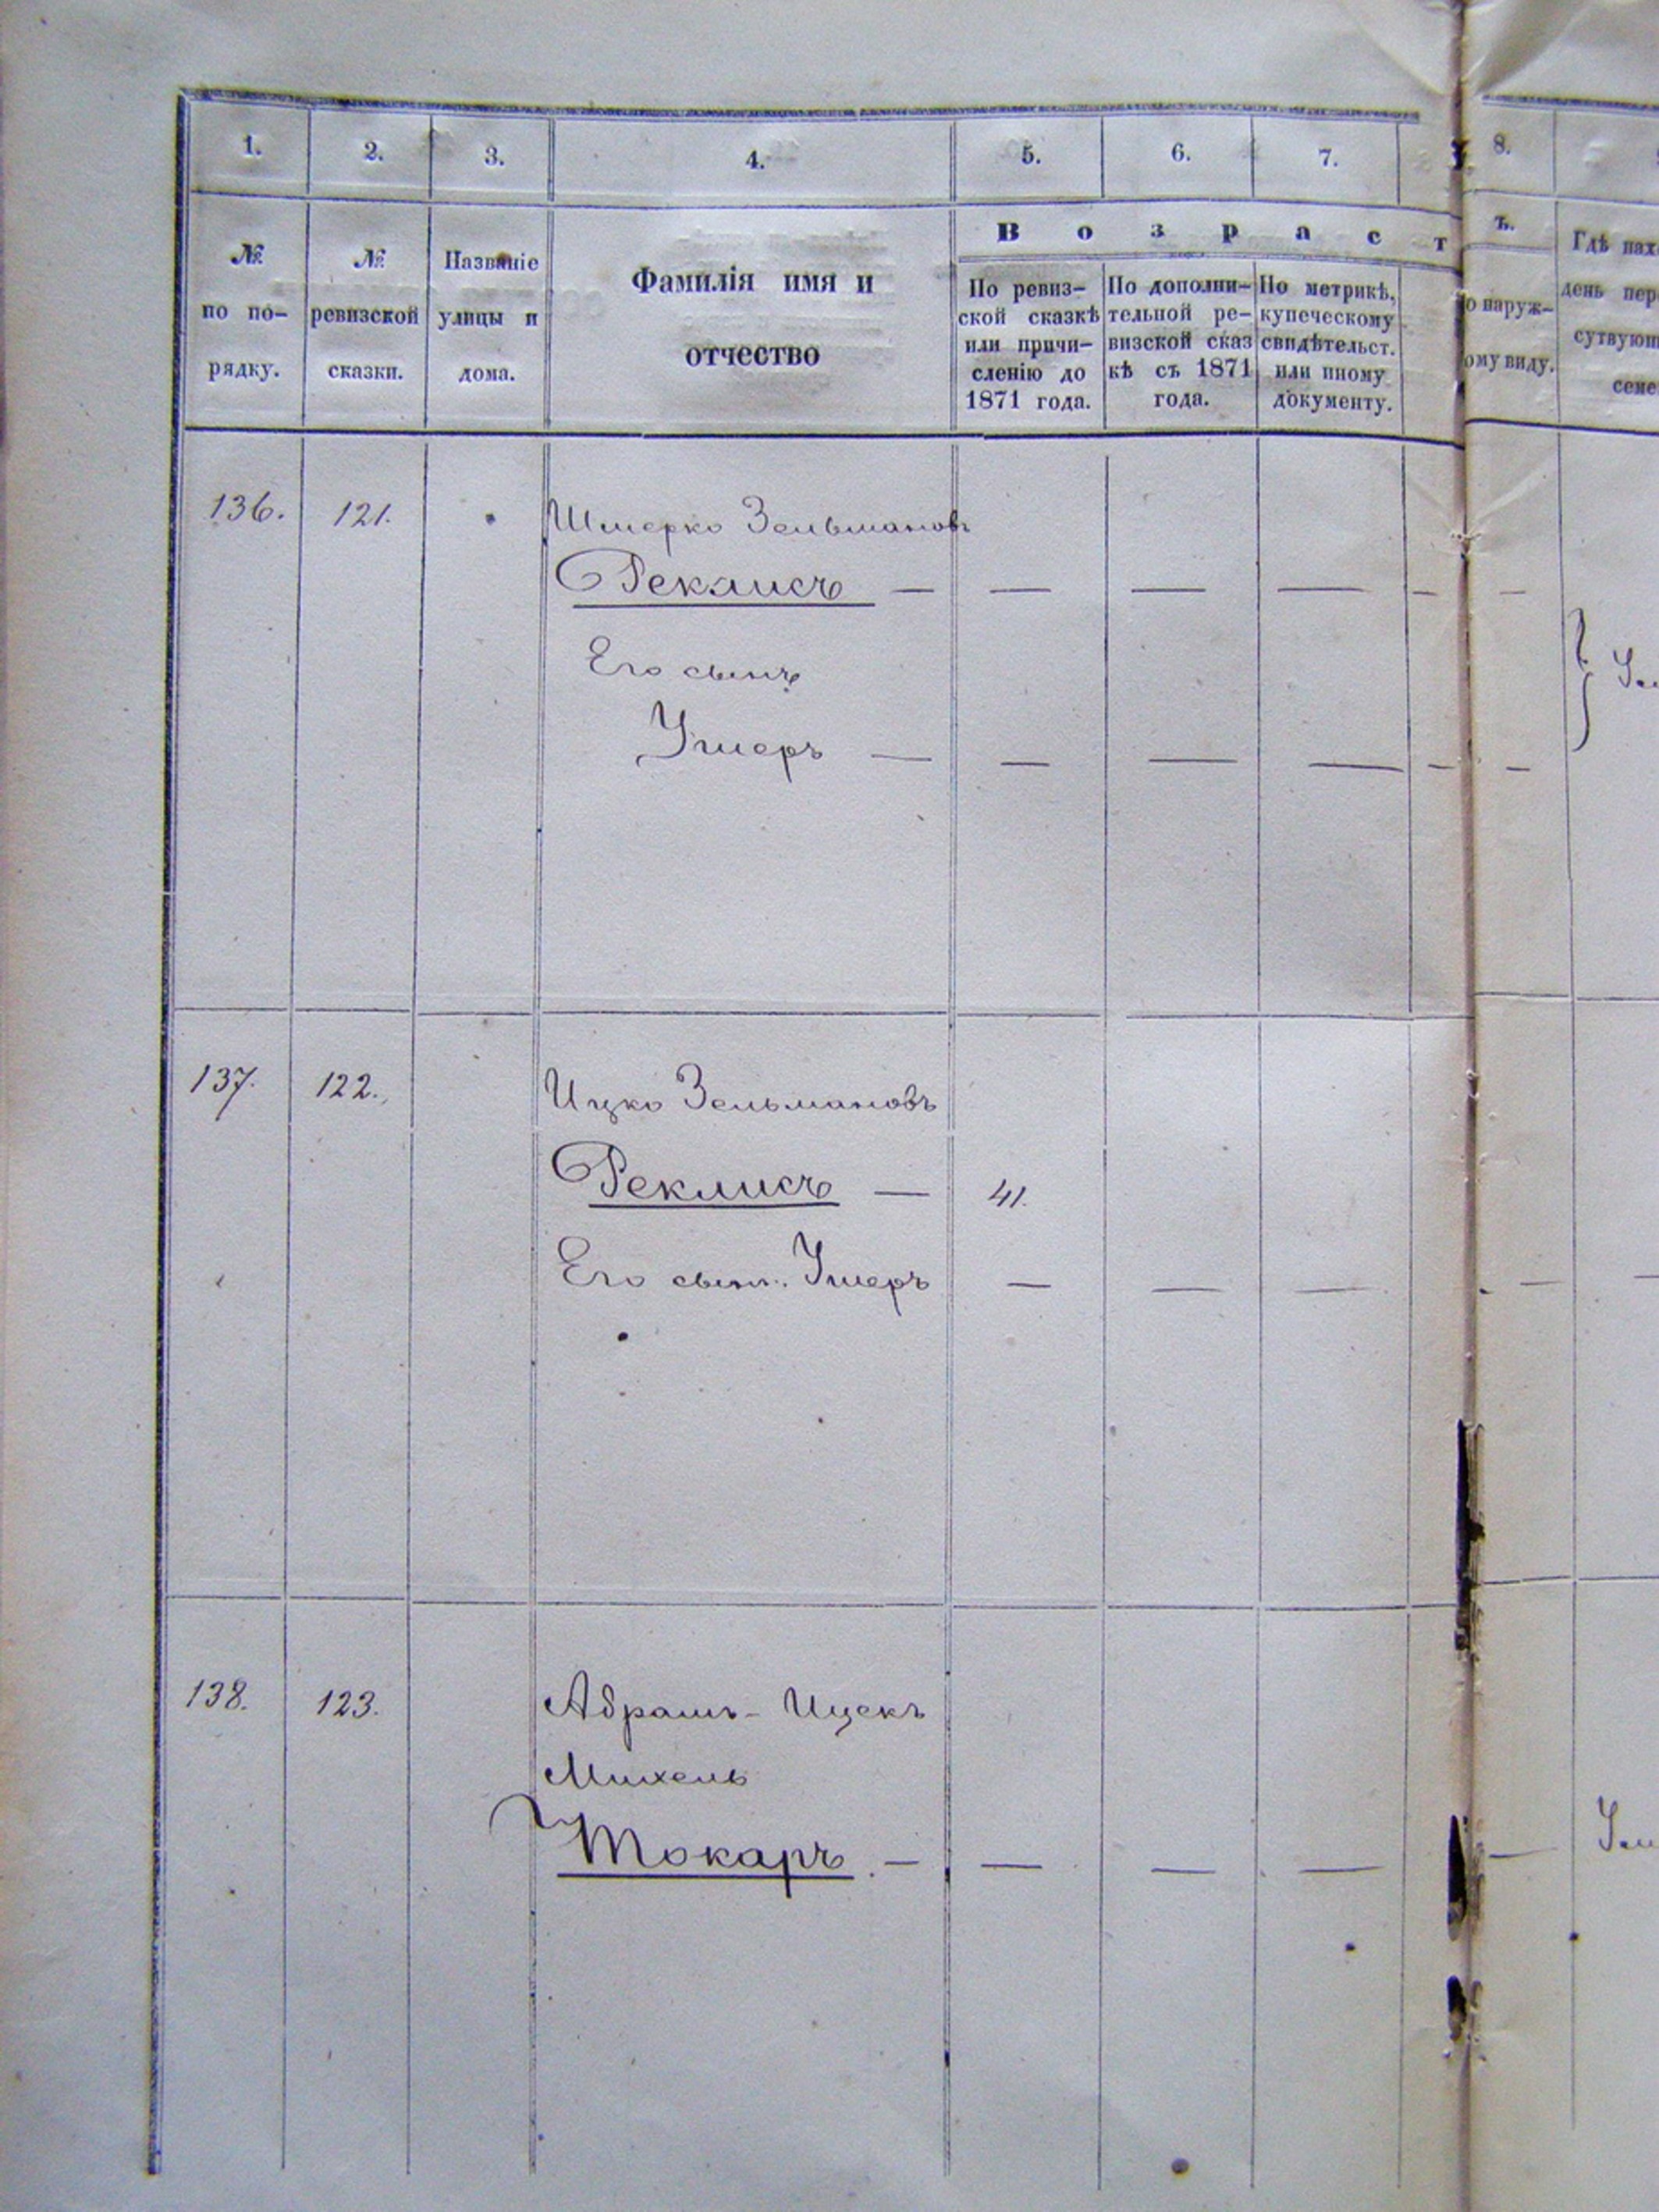 1. 2. 3. 4. 5. 6. 7. 8.
В о з р а с т ъ.
№ по по-
рядку.
№ ревизской
сказки.
Названіе
улицы и
дома.
Фамилія имя и
отчество
По ревиз-
ской сказкѣ
или причи-
сленію до
1871 года.
По дополни-
тельной ре-
визской сказ
кѣ съ 1871
года.
По метрикѣ,
купеческому
свидѣтельст.
или иному
документу.
о наруж-
ому виду.
Гдѣ нах
день пер
сутвующ
семе
136. 121. Шмерко Зельмановъ
Реклисъ — — — — — —
Его сынъ
Ушеръ — — — — — —
137. 122. Ицко Зельмановъ
Реклисъ — 41.
Его сынъ Ушеръ — — — — —
138. 123. Абрамъ-Ицекъ
Михель
Токаръ — — — — —